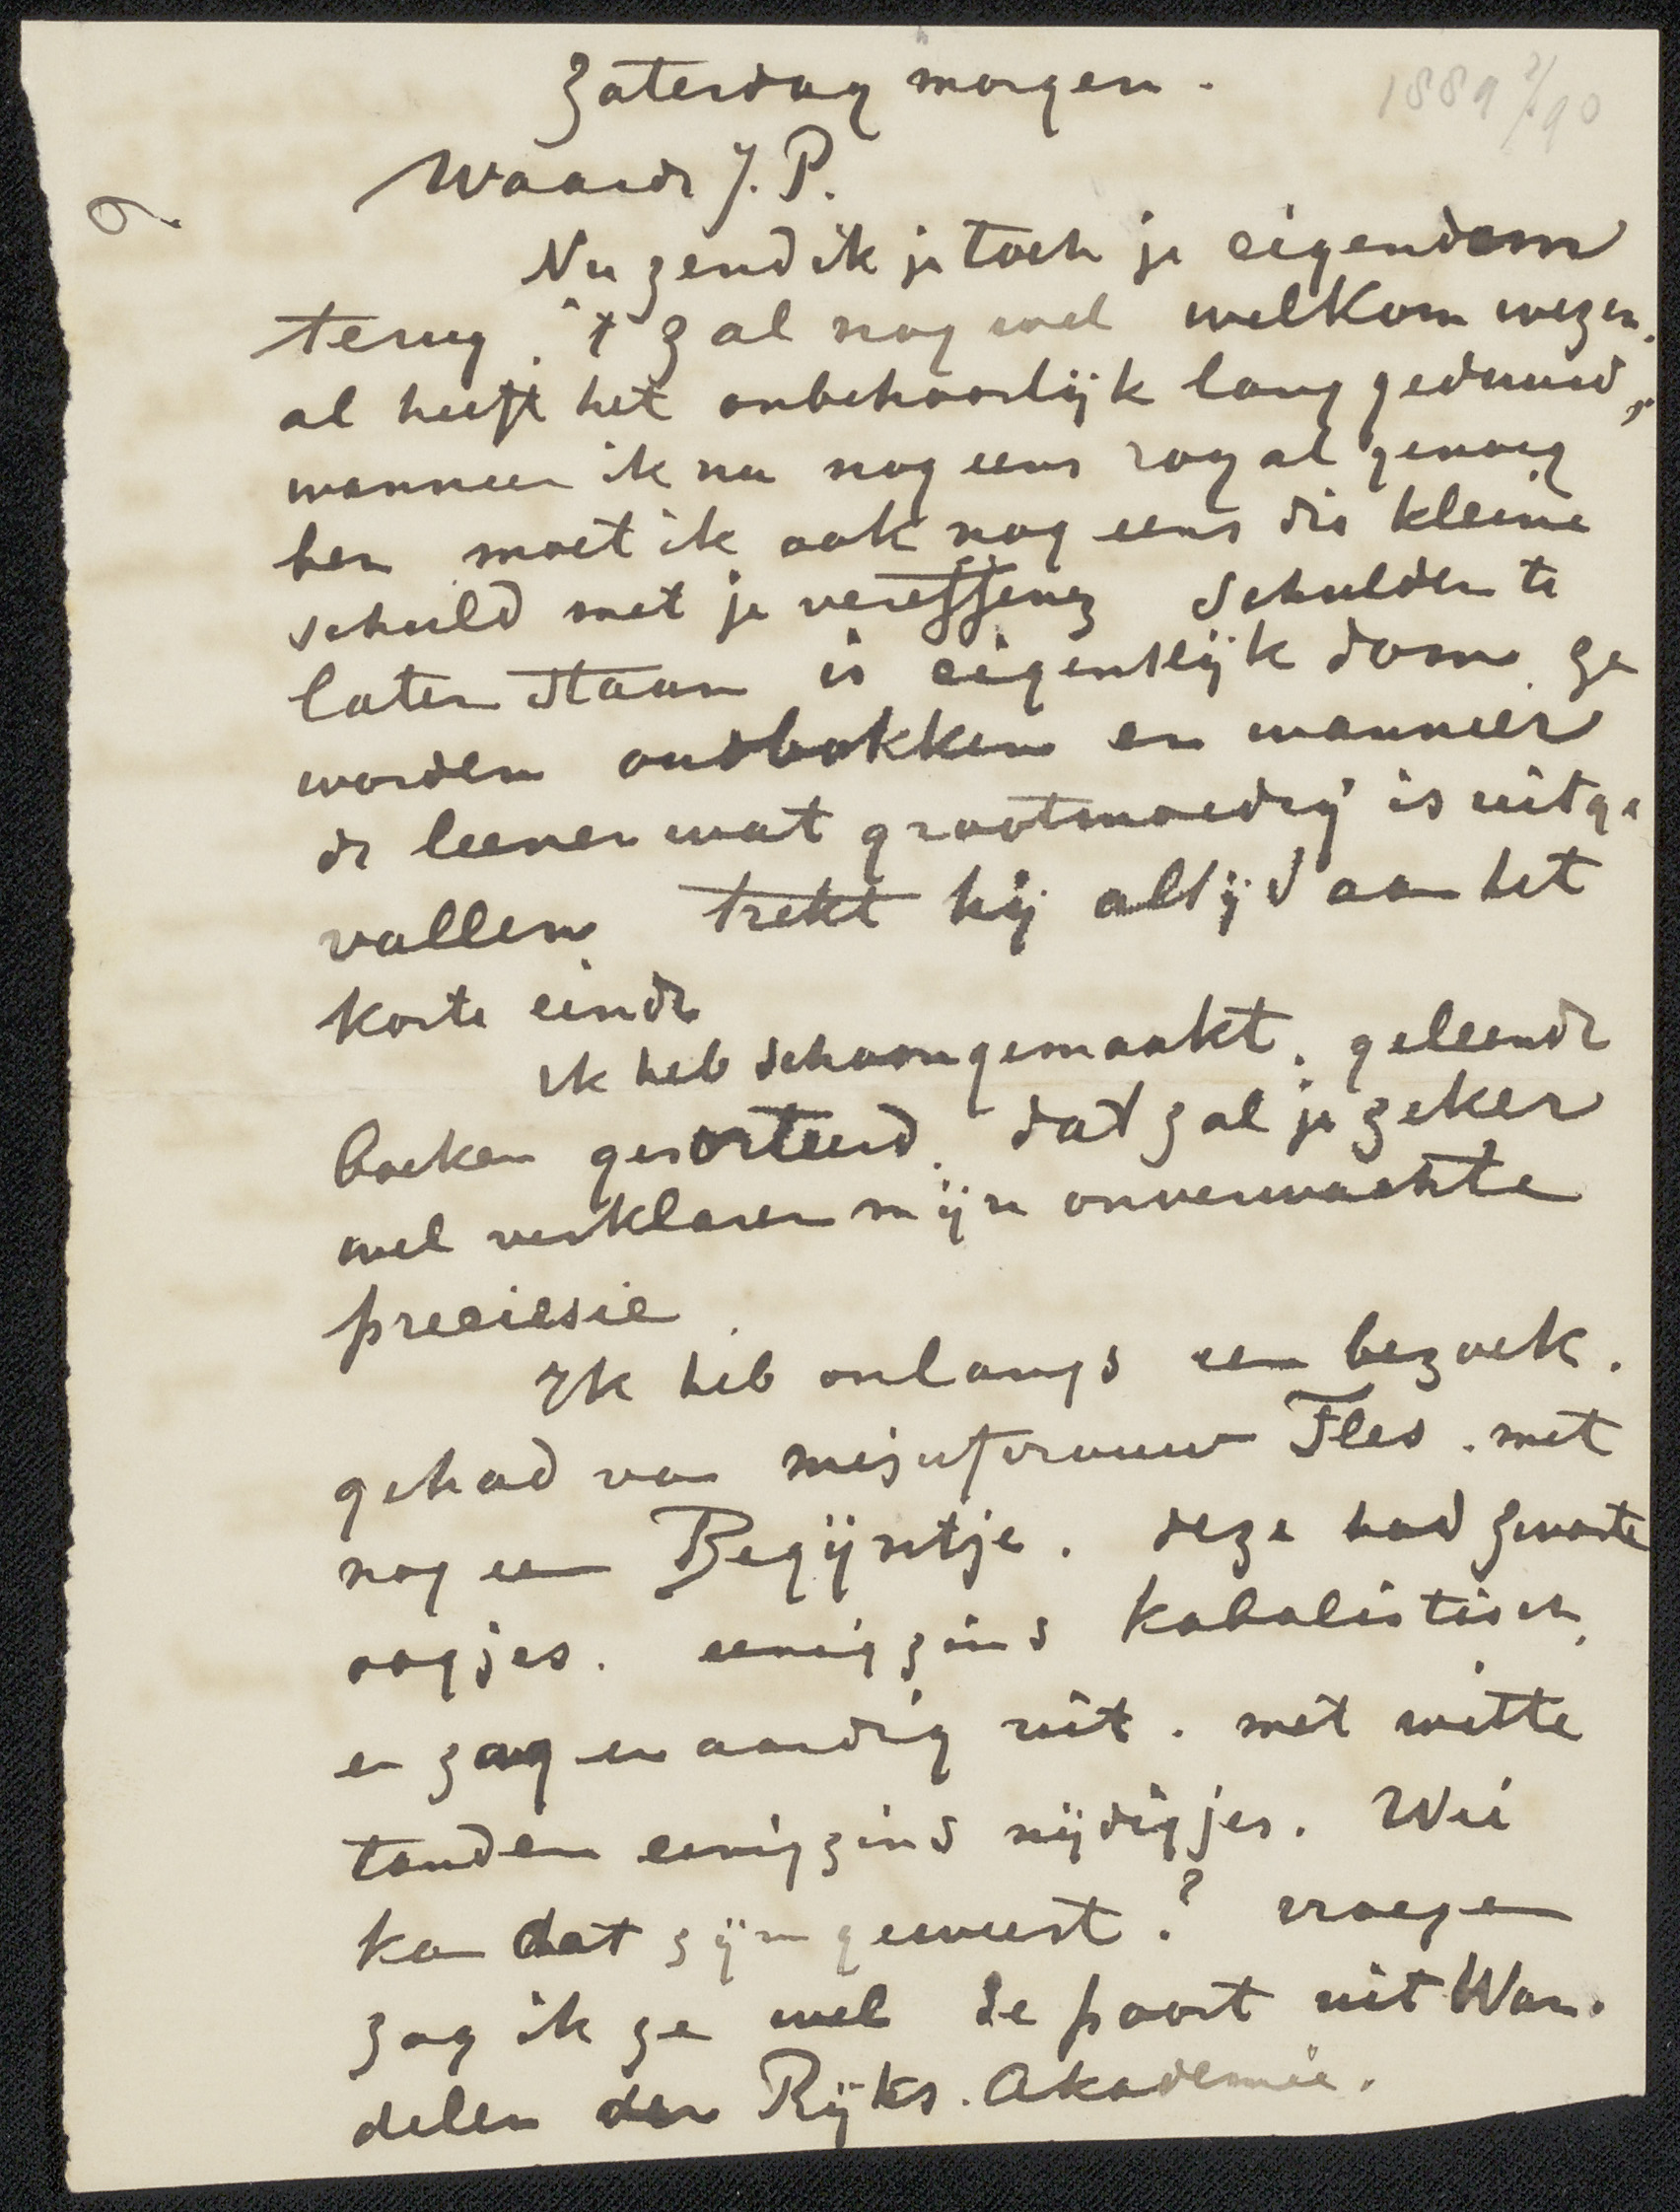 Zaterdag morgen.
1889/90
6
Waarde J. P.
Nu zend ik je toch je eigendom
terug. 't zal nog wel welkom wezen.
al heeft het onbehoorlijk lang geduurd,
wanneer ik nu nog eens royal genoeg
ben moet ik ook nog eens die kleine
schuld met je vereffenen schulden te
laten staan is eigentlijk dom. ze
worden oudbakken en wanneer
de leener wat grootmoedig is uitge
vallen trekt hij altijd aan het
korte einde
ik heb schoongemaakt. geleende
boeken gesorteerd. dat zal je zeker
wel verklaren mijn onverwachte
preciesie.
Ik heb onlangs een bezoek.
gehad van mejufvrouw Fles. met
nog een Begijntje. deze had zwarte
oogjes. eenigzins kabalistisch.
en zag er aardig uit. met witte
tanden eenigzins nijdigjes. Wie
kan dat zijn geweest? vroeger
zag ik ze wel de poort uit Wan.
delen der Rijks. Akademie.